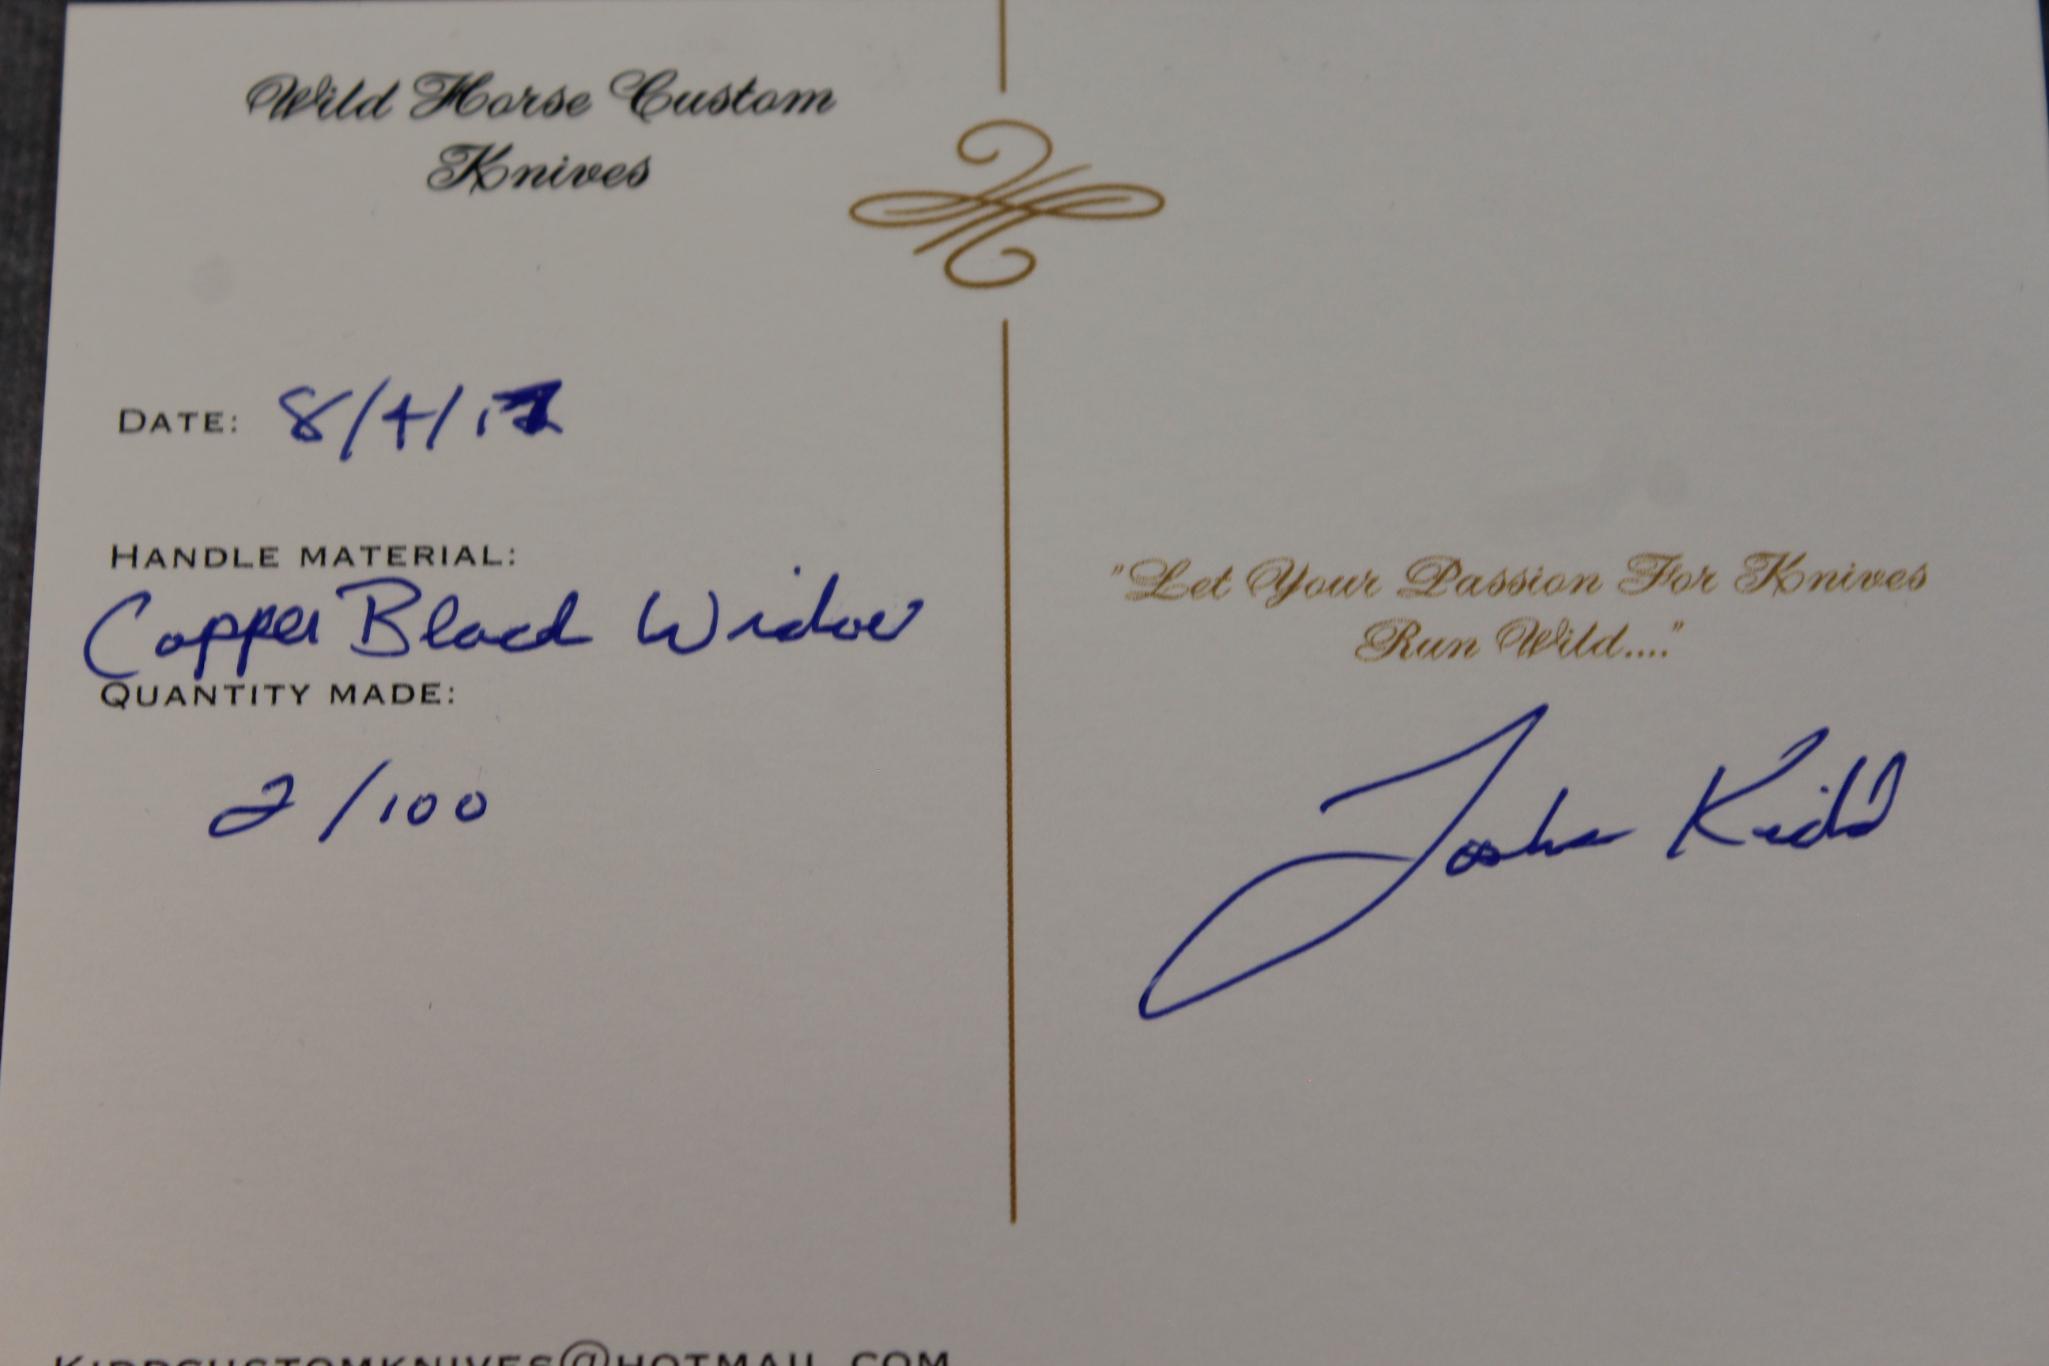 Wild Horse Custom
Knives
DATE: 8/4/12
HANDLE MATERIAL:
Copper Black Widow
QUANTITY MADE:
2/100
"Let Your Passion For Knives
Run Wild...."
Joshua Kidd
KIDDCUSTOMKNIVES@HOTMAIL.COM